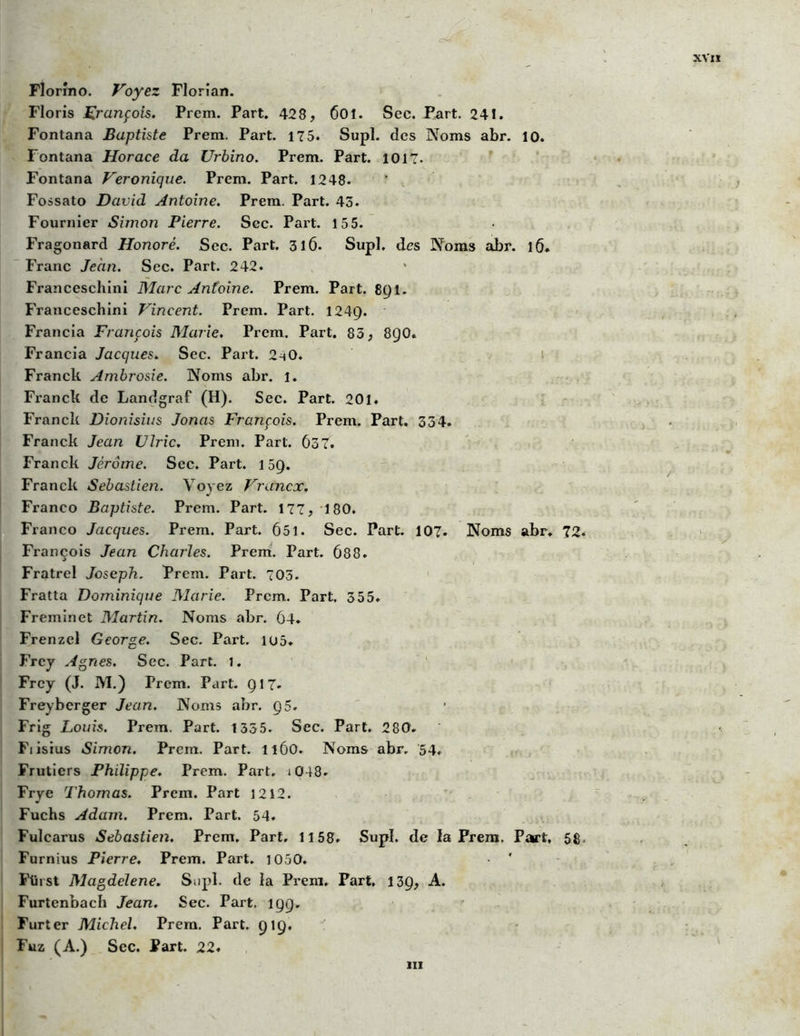 XVII
Florino. Voyez Florian.
Floris François. Prem. Part. 428, 601. Sec. Part. 241.
Fontana Baptiste Prem. Part. 175. Supl. des Noms abr. 10.
Fontana Horace da Urbino. Prem. Part. 1017.
Fontana Veronique. Prem. Part. 1248.
Fossato David Antoine. Prem. Part. 43.
Fournier Simon Pierre. Sec. Part. 155.
Fragonard Honoré. Sec. Part. 316. Supl. des Noms abr. 16.
Franc Jean. Sec. Part. 242.
Franceschini Marc Antoine. Prem. Part. 891.
Franceschini Vincent. Prem. Part. 1249.
Francia François Marie. Prem. Part. 83, 890.
Francia Jacques. Sec. Part. 240.
Franck Ambrosie. Noms abr. 1.
Franck de Landgraf (H). Sec. Part. 201.
Franck Dionisius Jonas François. Prem. Part. 334.
Franck Jean Ulric. Prem. Part. 637.
Franck Jérôme. Sec. Part. 159.
Franck Sebastien. Voyez Vrancx.
Franco Baptiste. Prem. Part. 177, 180.
Franco Jacques. Prem. Part. 651. Sec. Part. 107. Noms abr. 72.
François Jean Charles. Prem. Part. 688.
Fratrel Joseph. Prem. Part. 703.
Fratta Dominique Marie. Prem. Part. 355.
Freminet Martin. Noms abr. 64.
Frenzel George. Sec. Part. 105.
Frey Agnes. Sec. Part. 1.
Frey (J. M.) Prem. Part. 917.
Freyberger Jean. Noms abr. 95.
Frig Louis. Prem. Part. 1335. Sec. Part. 280.
Frisius Simon. Prem. Part. 1160. Noms abr. 54.
Frutiers Philippe. Prem. Part. 1048.
Frye Thomas. Prem. Part 1212.
Fuchs Adam. Prem. Part. 54.
Fulcarus Sebastien. Prem. Part. 1158. Supl. de la Prem. Part. 58.
Furnius Pierre. Prem. Part. 1050.
Fürst Magdelene. Supl. de la Prem. Part. 139, A.
Furtenbach Jean. Sec. Part. 199.
Furter Michel. Prem. Part. 919.
Fuz (A.) Sec. Part. 22.
III